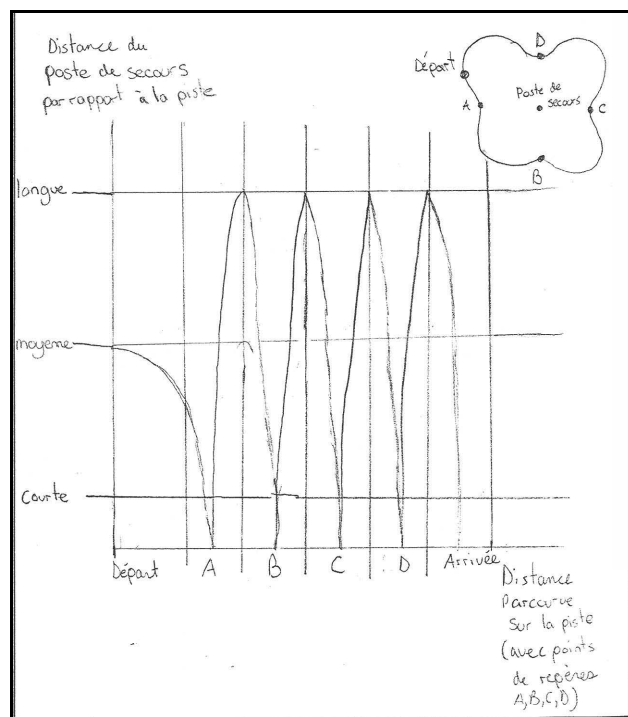 Distance du
poste de secours
par rapport à la piste
D
Départ
A
Poste de
secours
C
B
longue
moyenne
courte
Départ
A
B
C
D
Arrivée
Distance
Parcourue
Sur la piste
(avec points
de repères
A,B,C,D)